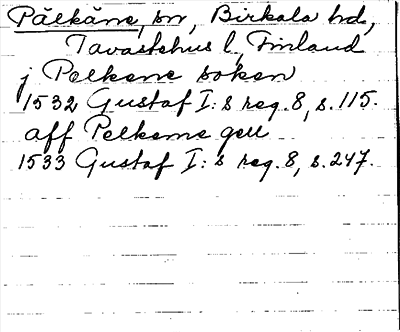 Pälkäne, sn, Birkala hd,
Tavastehus l, Finland
j Pelkene soken
1532 Gustaf I:s reg. 8, s. 115.
aff Pelkeme gell
1533 Gustaf I:s reg. 8, s. 247.